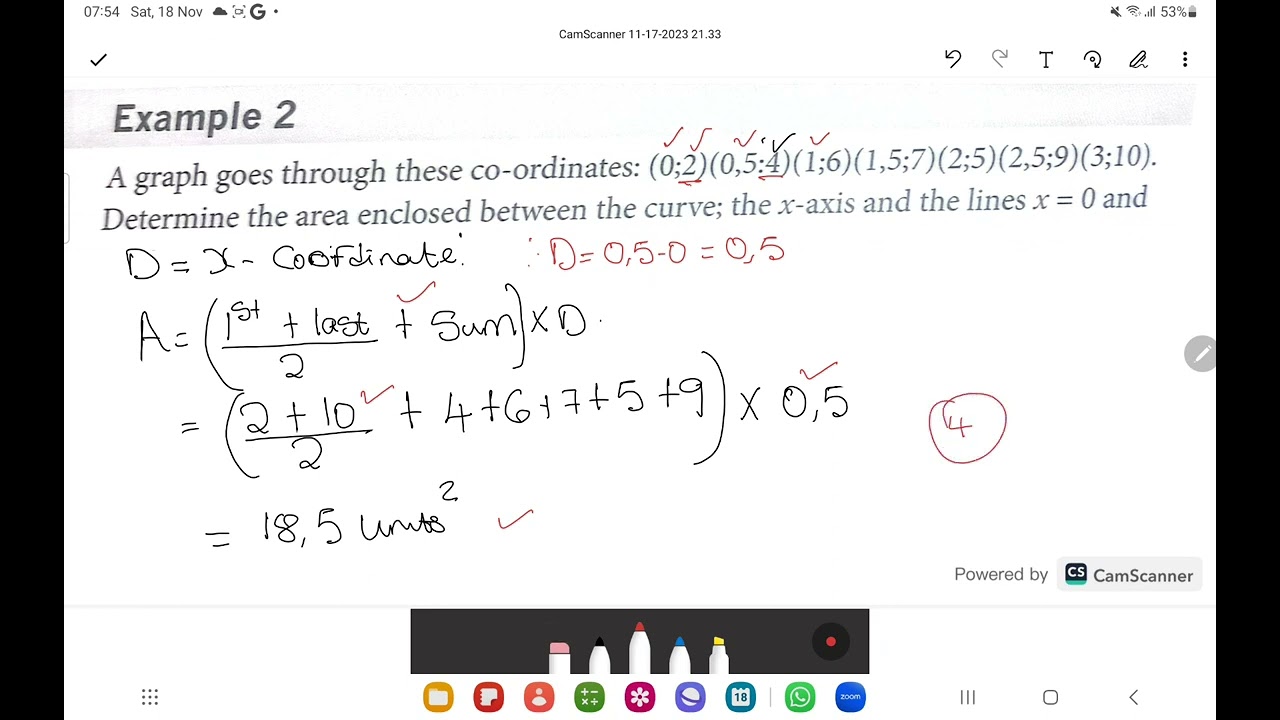 07:54 Sat, 18 Nov G
53%
CamScanner 11-17-2023 21.33
T
Example 2
A graph goes through these co-ordinates: (0;2)(0,5;4)(1;6)(1,5;7)(2;5)(2,5;9)(3;10).
Determine the area enclosed between the curve; the x-axis and the lines x = 0 and
D = x - coordinate. ∴ D = 0,5-0 = 0,5
A = (1st + last / 2 + Sum) x D.
= (2 + 10 / 2 + 4+6+7+5+9) x 0,5
4
= 18,5 units²
Powered by CS CamScanner
18
zoom